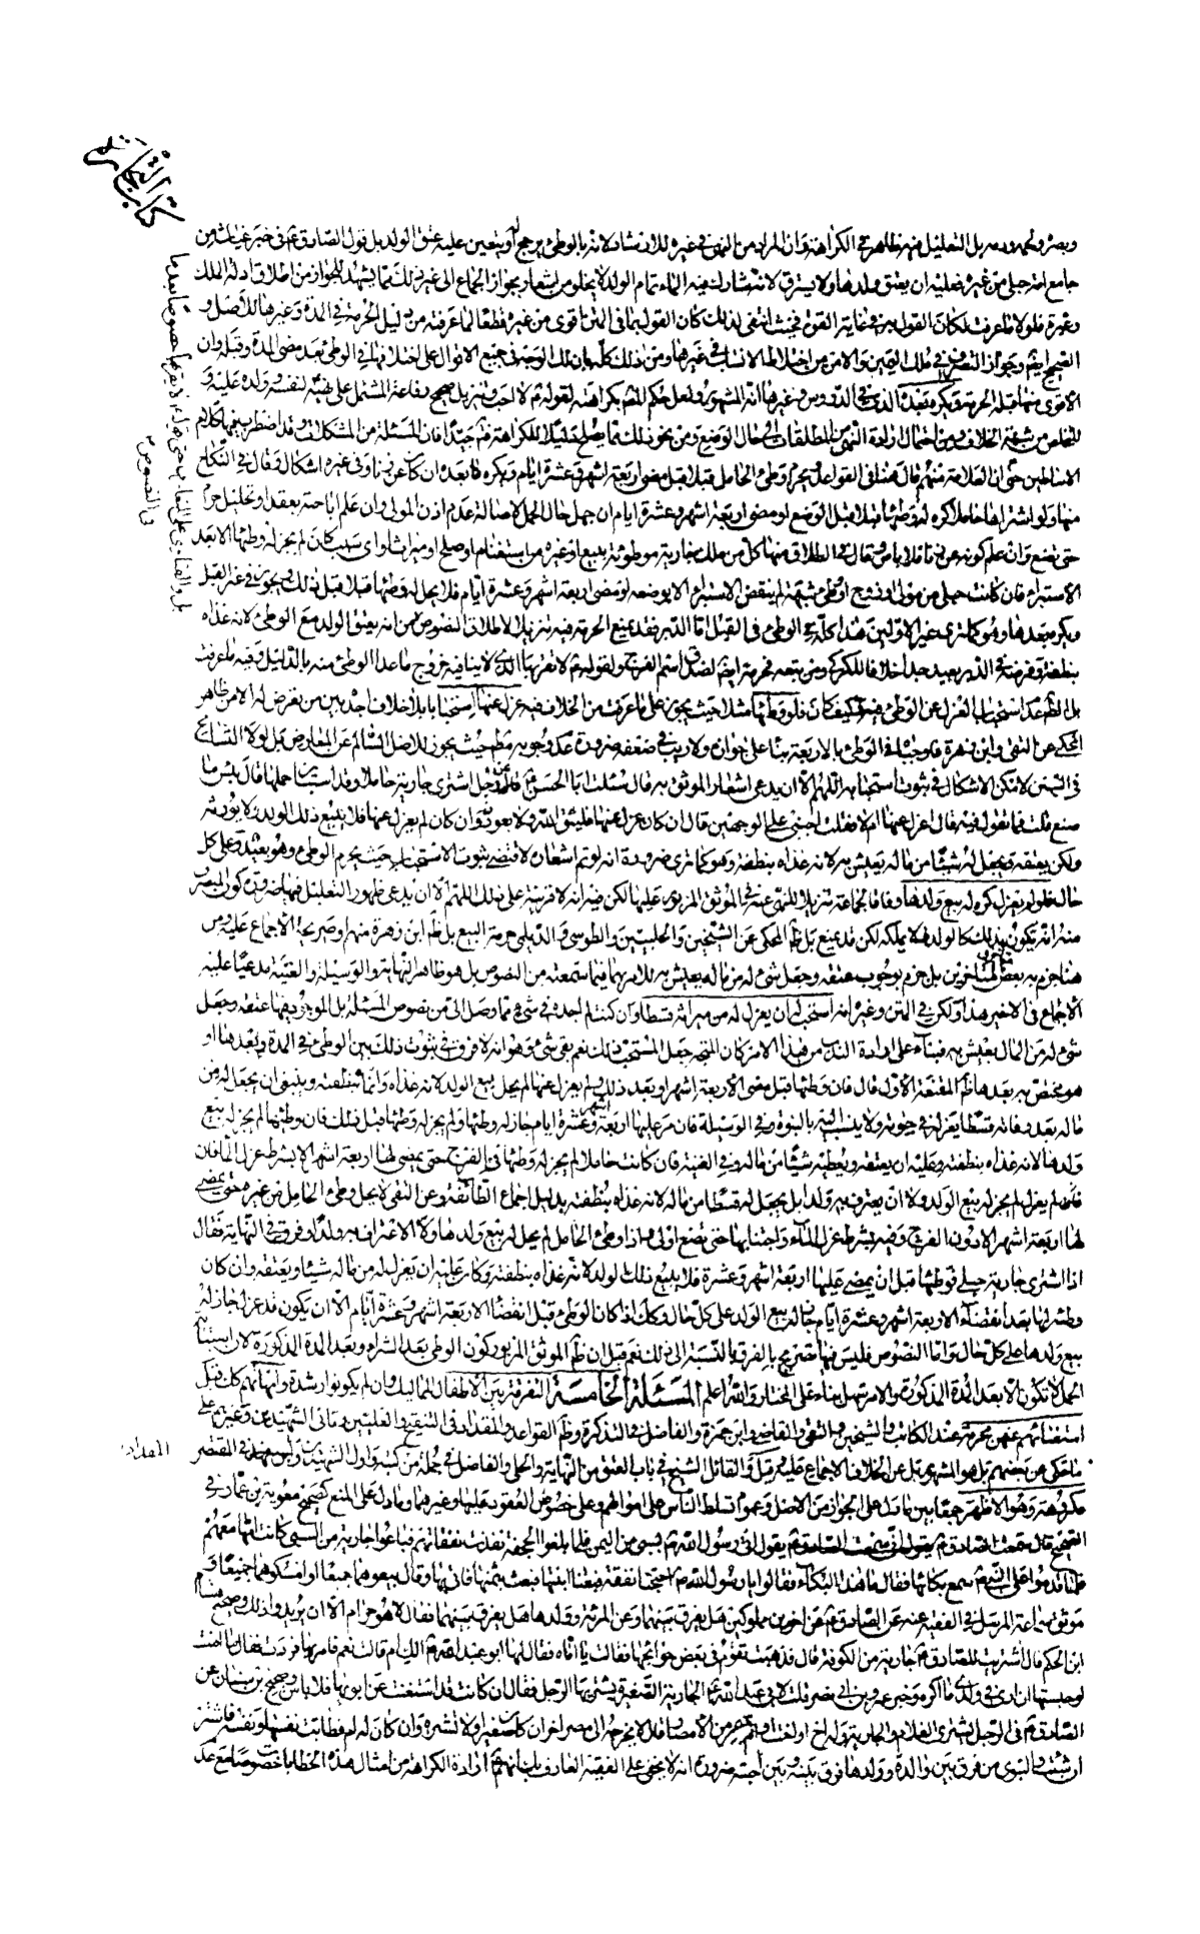 كتاب التجارة
وبصره بل التعليل فيهن ظاهر في الكراهة وان المراد من النهي في غيره للارشاد لانه بالوطئ يرجح او يتعين عليه عتق الولد بل قول الصادق ع في خبر غياث من
جامع امة حبلى من غيره فعليه ان يعتق ولدها ولا يسترق لانه شارك فيه الماء تمام الولد لا يخلو من اشعار بجواز الجماع الى غير ذلك مما يشهد للجواز من اطلاق ادلة الملك
وغيره فلولا ما عرفت لكان القول به في غاية القوة فحيث انتفى لذلك كان القول بما في المتن اقوى من غيره قطعا لما عرفته من دليل الحرمة في المدة وغيرها للاصل و
الصحيح وجواز التصرف في ملك اليمين والامن من اختلاط الانساب في غيرها ومن ذلك كله بان لك الوجه في جميع الاقوال على اختلافها في الوطئ بعد مضى المدة وقبله وان
الاقوى منها قبله الحرمة ويكره بعده الذي في الدروس وغيرها انه المشهور ولعل حكم المصنف بكراهته لقوله ع لا احب وتنزيل صحيح رفاعة المشتمل على نفسه وولده عليه و
للتخلص من شبهة الخلاف ومن احتمال ارادة النهي من المطلقات الى حال الوضع ومن نحو ذلك مما يصلح دليلا للكراهة جيدا فان المسئلة من المشكلات وقد اضطرب فيها كلام
الاساطين حتى ان العلامة منهم قال هنا في القواعد يحرم وطئ الحامل قبلا قبل مضى اربعة اشهر وعشرة ايام ويكره بعده ان كان عن زنا وفي غيره اشكال وقال في النكاح
منها ولو اشتراها حاملا كره له وطئها قبلا قبل الوضع او مضى اربعة اشهر وعشرة ايام ان جهل حال الحمل لاصالة عدم اذن المولى وان علم اباحته بعقد او تحليل حرم
حتى تضع وان علم كونه عن زنا فلا باس وقال في الطلاق منها كل من ملك جارية موطوئة ببيع او غيره من استغنام او صلح او ميراث او اي سبب كان لم يجز له وطئها الا بعد
الاستبراء فان كانت حبلى من مولى او زوج او وطئ شبهة لم ينقض الاستبراء الا بوضعه او مضى اربعة اشهر وعشرة ايام فلا يحل له وطئها قبلا قبل ذلك ويجوز في غير القبل
ويكره بعدها وهو كما ترى غير الاولين هذا كله في الوطئ في القبل اما الدبر فقد يمنع الحرمة فيه تنزيلا لاطلاق النصوص من انه يعتق الولد مع الوطئ لانه غذاه
بنطفته وفرضه في الدبر بعيد جدا خلافا للكركي ومن تبعه فحرمه ايضا لصدق اسم الفرج ولقوله ع لا تقربها الذي لا ينافيه خروج ما عدا الوطئ منه بالدليل وفيه ما عرفت
كيف كان فلو وطئها مثلا حيث يجوز على ما عرفت من الخلاف فيه عزل عنها استحبابا بلا خلاف اجده بين من تعرض له الا من ظاهر
المحكي عن التقى وابن زهرة فاوجباه في الوطئ بالاربعة بناء على جوازه ولا ريب في ضعفه ضرورة عدم وجوبه مطلقا حيث يجوز للاصل السالم عن المعارض بل لولا التسامح
في السنن لامكن الاشكال في ثبوت استحبابه اللهم الا ان يدعى اشعار الموثق به قال سئلت ابا الحسن ع عن رجل اشترى جارية حاملا وقد استبان حملها فوطئها قال بئس ما
صنع قلت فما تقول فيه قال اعزل عنها ام لا فقلت اجبني على الوجهين قال ان كان عزل عنها فليتق الله ولا يعود وان كان لم يعزل عنها فلا يبيع ذلك الولد ولا يورثه
ولكن يعتقه ويجعل له شيئا من ماله يعيش به لانه غذاه بنطفته وهو كما ترى ضرورة انه لو تم اشعاره لاقتضى ثبوت الاستحباب حيث يحرم الوطئ وهو بعيد وعلى كل
حال فلو لم يعزل كره له بيع ولدها وفاقا لجماعة تنزيلا للنهي عنه في الموثق المزبور عليها لكن فيه انه لا قرينة على ذلك اللهم الا ان يدعى ظهور التعليل فيها ضرورة كون
منه انه يكون بذلك كالولد فلا يملكه لكن قد يمنع بل ظاهر المحكي عن الشيخين والحلبيين والطوسي والديلمي حرمة البيع بل ظاهر ابن زهرة منهم او صريحه الاجماع عليه ومن
هنا جزم به بعض المتاخرين بل جزم بوجوب عتقه وجعل شئ له من ماله يعيش به للامر بهما فيما سمعته من النصوص بل هو ظاهر النهاية والوسيلة والغنية مدعيا عليه
الاجماع في الاخير هذا ولكن في المتن وغيره انه استحب له ان يعزل له من ميراثه قسطا وان كنت لم اجده في شئ مما وصل الي من نصوص المسئلة بل الموجود فيها عتقه وجعل
شئ له من المال يعيش به فبناء على ارادة الندب من هذا الامر كان المتجه جعل المستحب ذلك نعم بقى شئ وهو انه لا فرق في ثبوت ذلك بين الوطئ في المدة وبعدها او
هو مختص به بعدها ظاهر المقنعة الاول قال فان وطئها قبل مضى الاربعة اشهر او بعد ذلك ولم يعزل عنها لم يحل بيع الولد لانه غذاه وانماه بنطفته وينبغي ان يجعل له من
ماله بعد وفاته قسطا ويعوله في حيوته ولا ينسب اليه بالبنوة وفي الوسيلة فان مر عليها اربعة اشهر وعشرة ايام جاز له وطئها ولم يجز له وطئها قبل ذلك فان وطئها لم يجز له بيع
ولدها لانه غذاه بنطفته وعليه ان يعتقه ويعطيه شيئا من ماله وفي الغنية فان كانت حاملا لم يجز له وطئها في الفرج حتى يمضى لها اربعة اشهر الا بشرط عزل الماء فان
لم يعزل لم يجز له بيع الولد ولا ان يعترف به ولدا بل يجعل له قسطا من ماله لانه غذاه بنطفته بدليل اجماع الطائفة وعن التقى لا يحل وطئ الحامل من غيره حتى يمضى
لها اربعة اشهر الا دون الفرج وفيه بشرط عزل الماء واجتنابها حتى تضع اولى فاذا وطئ الحامل لم يحل له بيع ولدها ولا الاعتراف به ولدا وفرق في النهاية فقال
اذا اشترى جارية حبلى فوطئها قبل ان يمضى عليها اربعة اشهر وعشرة فلا يبيع ذلك الولد لانه غذاه بنطفته وكان عليه ان يعزل له من ماله شيئا ويعتقه وان كان
وطئه لها بعد انقضاء الاربعة اشهر وعشرة ايام جاز له بيع الولد على كل حال وكك اذا كان الوطئ قبل انقضاء الاربعة اشهر وعشرة ايام الا ان يكون قد عزل جاز له
بيع ولدها على كل حال واما النصوص فليس فيها تصريح بالفرق بالنسبة الى ذلك نعم قيل ان ظاهر الموثق المزبور كون الوطئ بعد الشراء وبعد المدة المذكورة لان استبانة
الحمل لا تكون الا بعد المدة المذكورة والامر سهل بناء على المختار والله اعلم المسئلة الخامسة التفرقة بين الاطفال المماليك وان لم يكونوا رشدة وامهاتهم كك قبل
استغنائهم عنهن محرمة عند الكاتب والشيخين والتقى والقاضى وابن حمزة والفاضل في التذكرة وظاهر القواعد والمقداد في التنقيح والعليين وثاني الشهيدين وغيرهم على
ما حكى عن بعضهم بل هو المشهور بل عن الخلاف الاجماع عليه وقيل والقائل الشيخ في باب العتق من النهاية والحلي والفاضل في جملة من كتبه واول الشهيدين وابن فهد في المقتصر
مكروهة وهو الاظهر جمعا بين ما دل على الجواز من الاصل وعموم تسلط الناس على اموالهم وعلى خصوص العقود عليها وغيرهما وما دل على المنع كصحيح معوية بن عمار في
الصحيح قال سمعت الصادق ع يقول اتى رسول الله ص بسبى من اليمن فلما بلغوا الجحفة نفدت نفقاتهم فباعوا جارية من السبي كانت امها معهم
فلما قدموا على النبي ص سمع بكائها فقال ما هذا البكاء فقالوا يا رسول الله ص احتجنا نفقة فبعنا ابنتها فبعث بثمنها فاتى بها وقال بيعوهما جميعا او امسكوهما جميعا و
موثق سماعة المرسل في الفقيه عنه عن الصادق ع عن اخوين مملوكين هل يفرق بينهما وعن المرئة وولدها هل يفرق بينهما فقال لا هو حرام الا ان يريدوا ذلك وصحيح هشام
ابن الحكم قال اشتريت للصادق ع جارية من الكوفة قال فذهبت تقوم في بعض حوائجها فقالت يا اماه فقال لها ابو عبد الله ع الك ام قالت نعم فامر بها فردت فقال ما امنت
لو حبستها ان ارى في ولدي ما اكره وخبر عمرو بن ابي نصر قلت لابي عبد الله ع الجارية الصغيرة يشتريها الرجل فقال ان كانت قد استغنت عن ابويها فلا باس وصحيح بن سنان عن
الصادق ع في الرجل يشترى الغلام والجارية وله اخ او اخت او ام بمصر من الامصار قال لا يخرجه الى مصر اخر ان كان صغيرا ولا تشتره وان كان له ام فطابت نفسها ونفسه فاشتره
ان شئت والنبوي من فرق بين والدة وولدها فرق بينه وبين احبته ضرورة انه لا يخفى على الفقيه العارف بلسانهم ع ارادة الكراهة من امثال هذا الخطاب خصوصا مع عدم
المقداد